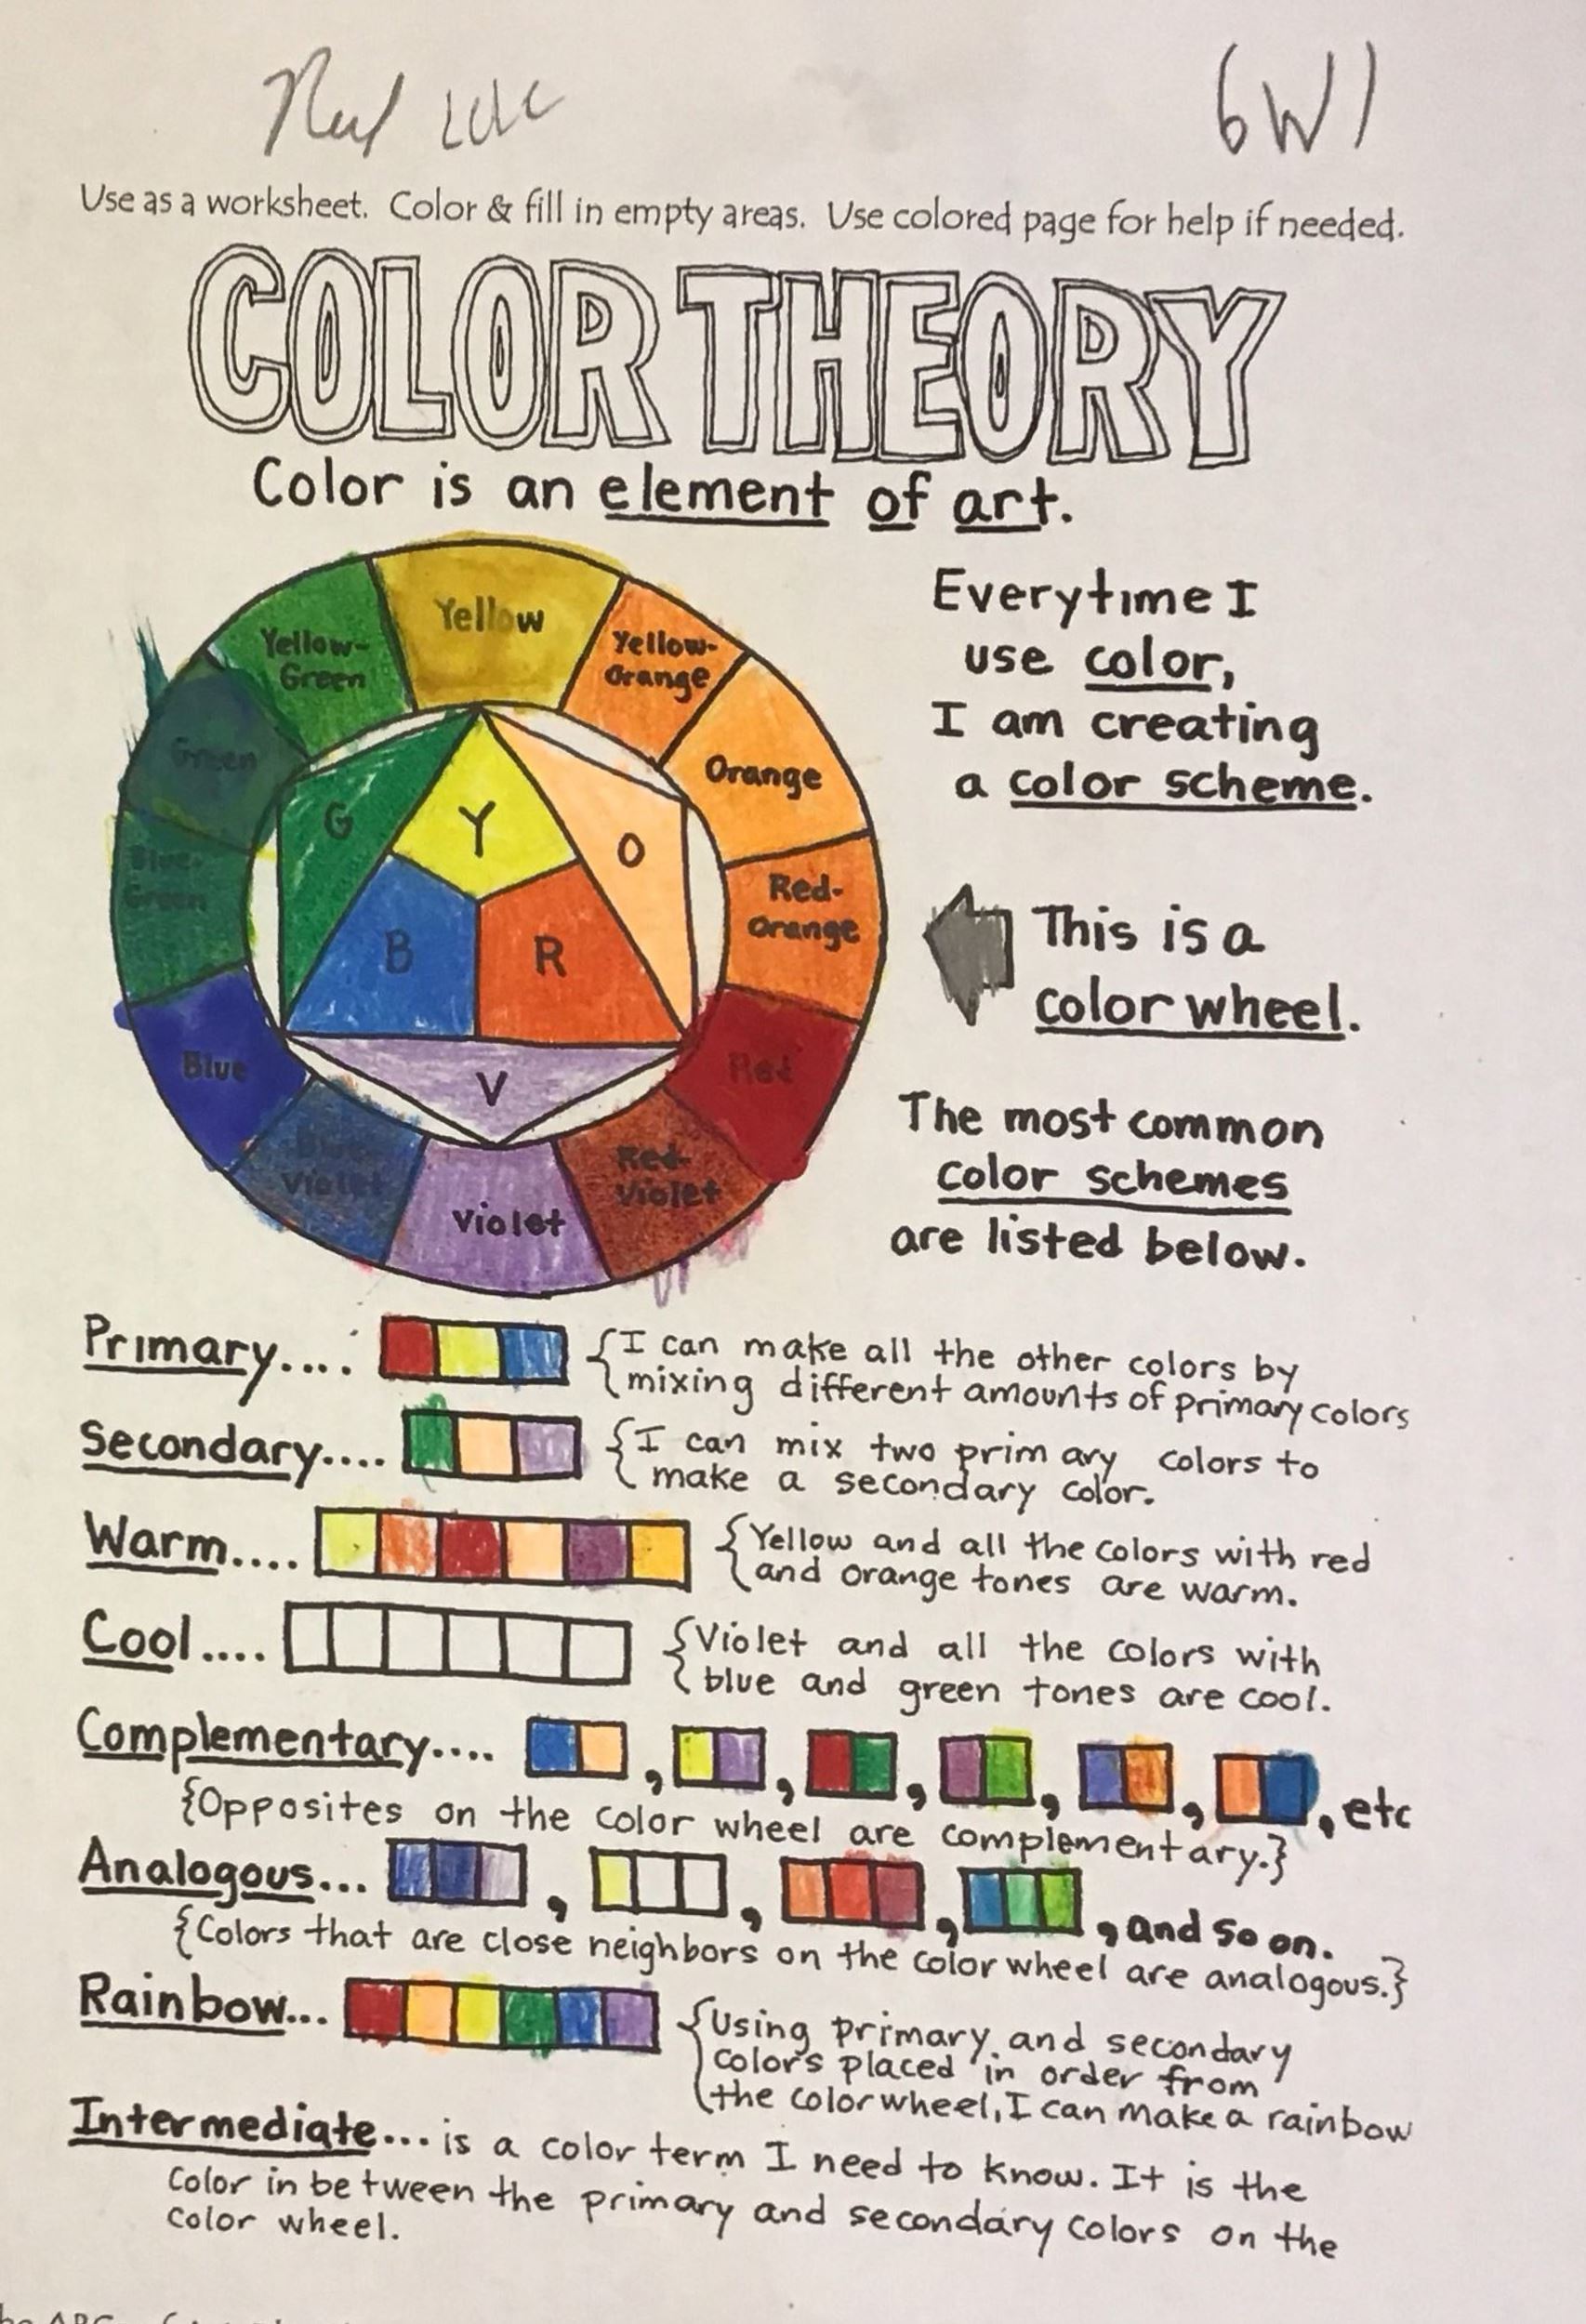 6W1
Use as a worksheet. Color & fill in empty areas. Use colored page for help if needed.
COLOR THEORY
Color is an element of art.
Yellow
Yellow-
Green
Yellow-
Orange
Green
Orange
G
Y
O
Blue-
Green
Red-
Orange
B
R
Blue
Red
V
Blue
Violet
Red-
Violet
Violet
Everytime I
use color,
I am creating
a color scheme.
This is a
color wheel.
The most common
color schemes
are listed below.
Primary.... {I can make all the other colors by
mixing different amounts of primary colors
Secondary.... {I can mix two prim ary colors to
make a secondary color.
Warm.... {Yellow and all the colors with red
and orange tones are warm.
Cool.... {Violet and all the colors with
blue and green tones are cool.
Complementary.... , , , , , , etc
{Opposites on the color wheel are complementary.}
Analogous... , , , , and so on.
{Colors that are close neighbors on the color wheel are analogous.}
Rainbow... {Using primary and secondary
colors placed in order from
the color wheel, I can make a rainbow
Intermediate... is a color term I need to know. It is the
color in between the primary and secondary colors on the
color wheel.